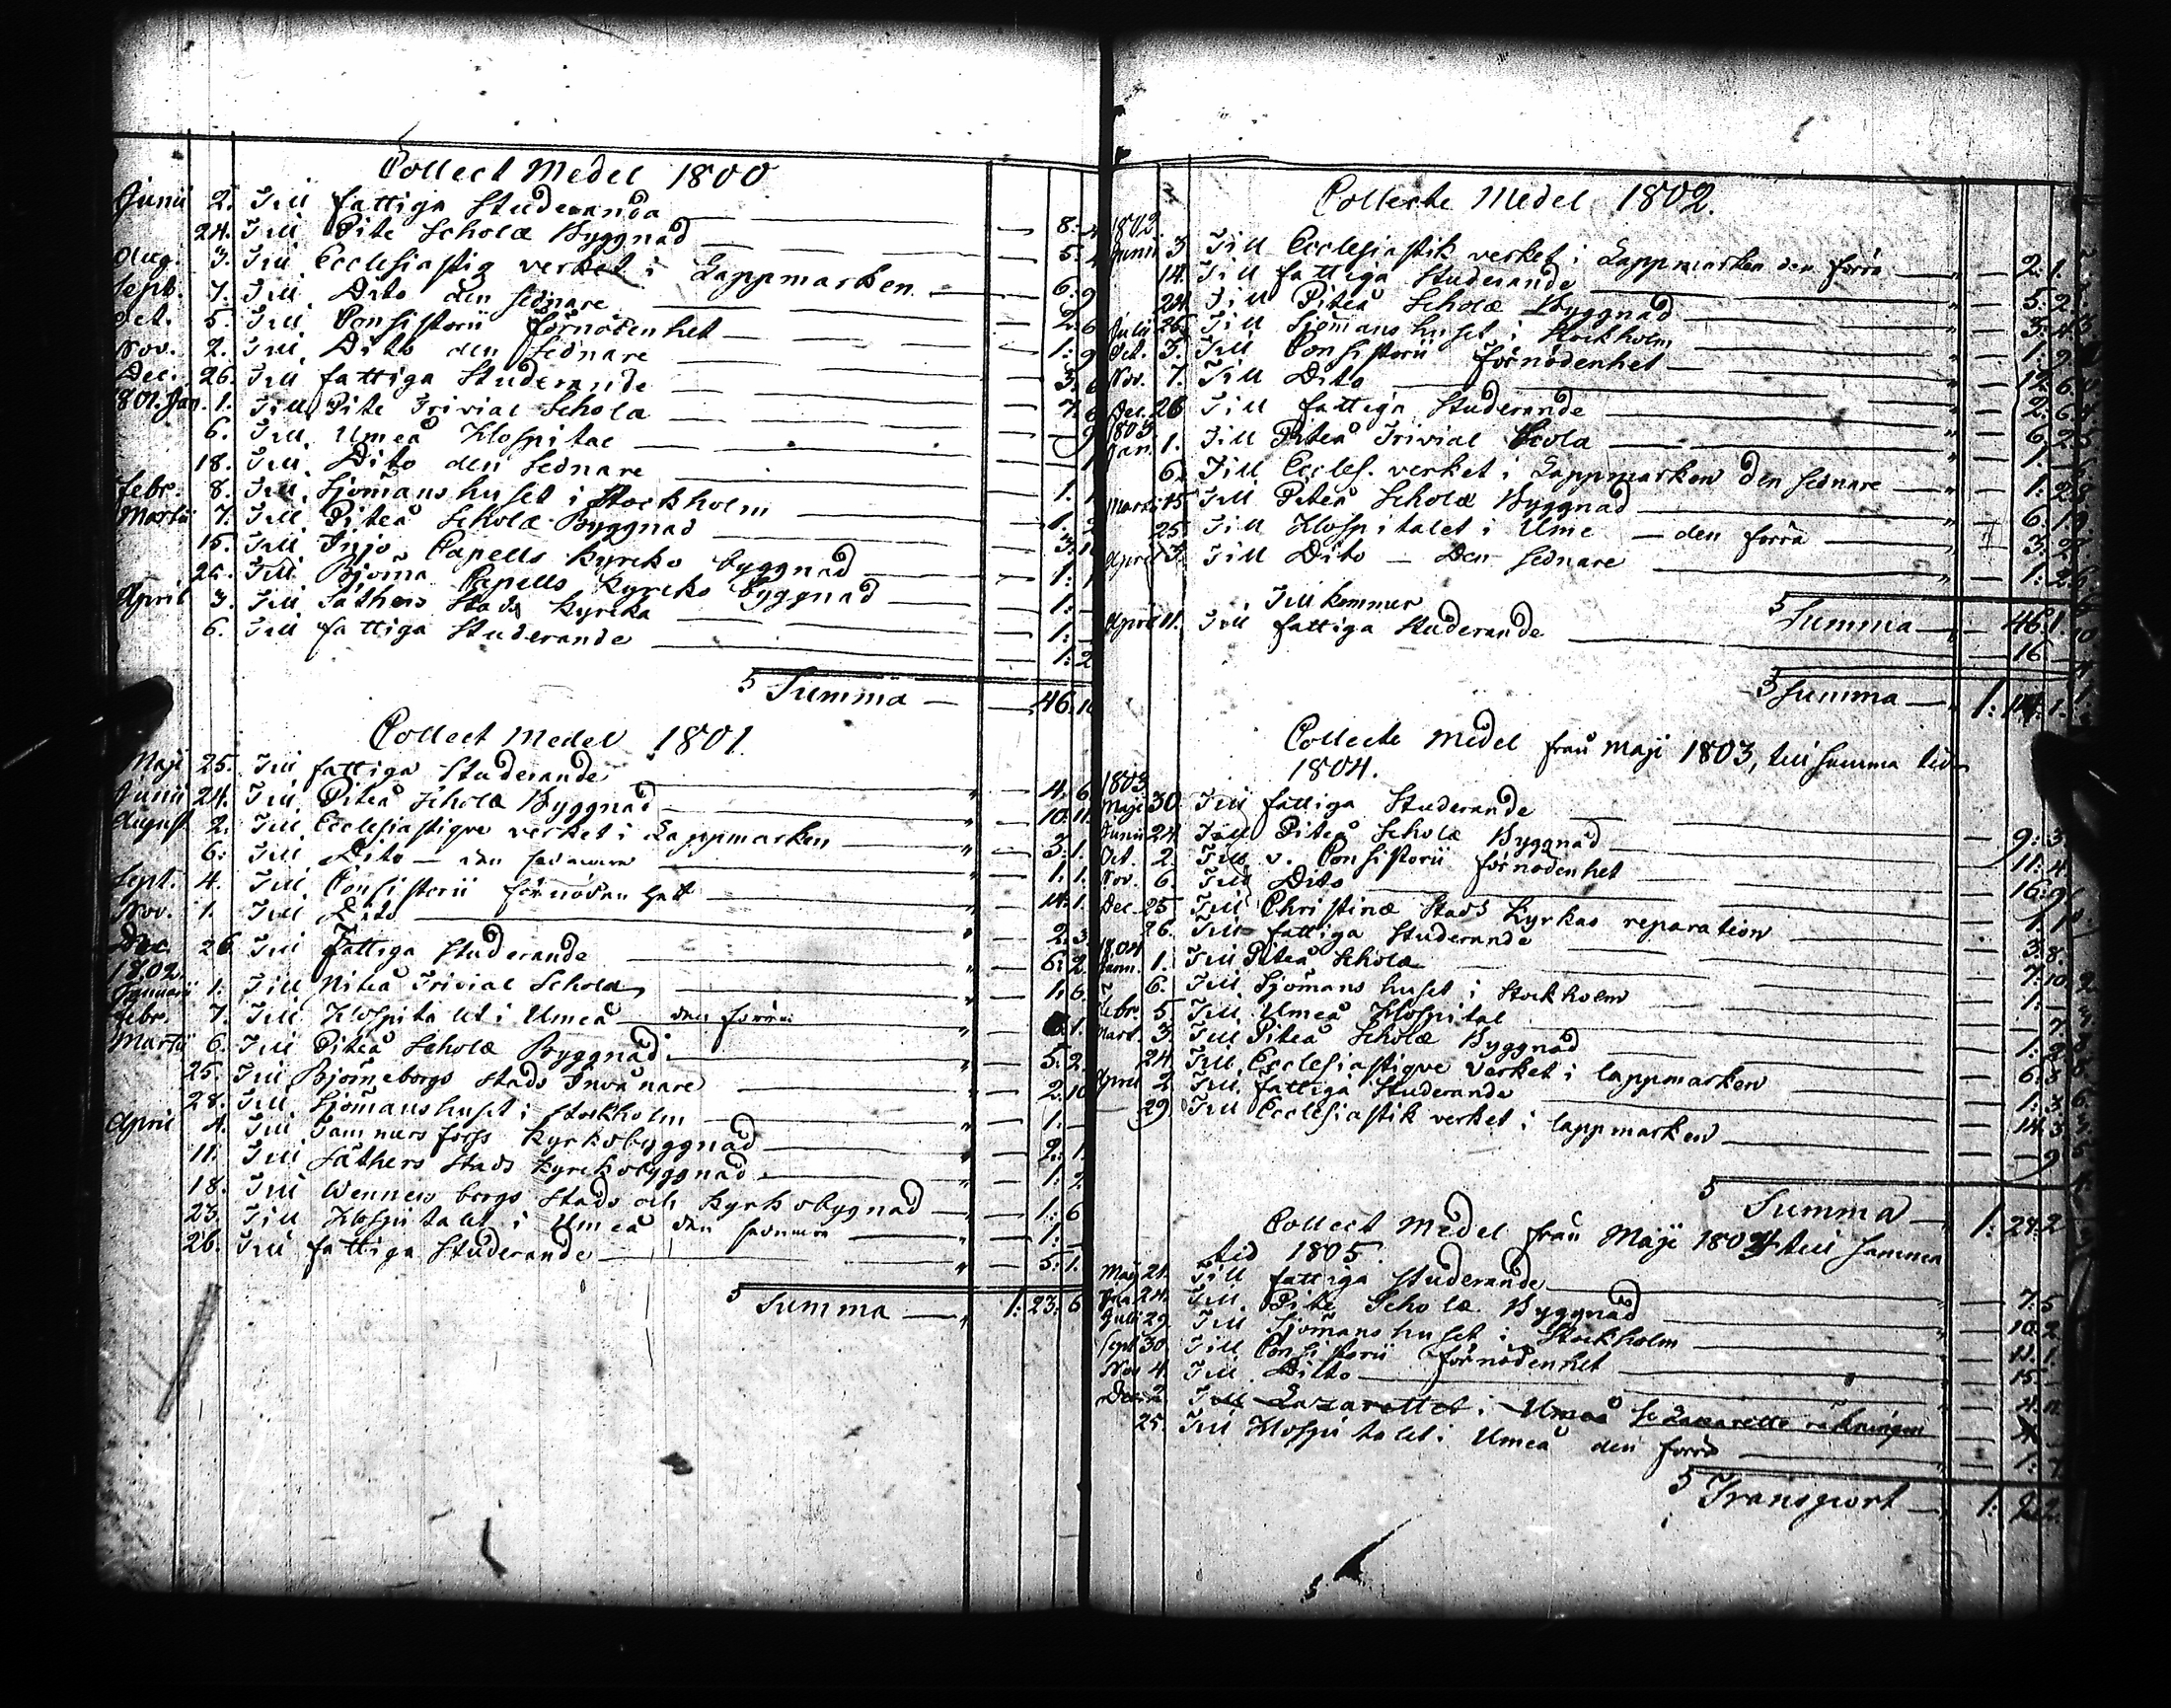 Collect Medel 1800
Junii 2. Till fattiga Studeranda — 8.
24. Till Pite Scholæ Byggnad — 5.
Aug. 3. Till Ecclesiastiq verket i Lappmarken — 6. 9
Sept. 7. Till Dito den sednare — 2. 6
Oct. 5. Till Consistorii förnödenhet — 1. 9
Nov. 2. Till Dito den sednare — 3. 6
Dec. 26. Till fattiga Studerande — 7. 6
1801. Jan. 1. Till Pite Trivial Schola — 9
6. Till Umeå Hospital —
18. Till Dito den sednare — 1.
Febr. 8. Till Sjömanshuset i Stockholm — 1. 2
Martii 7. Till Piteå Scholæ Byggnad — 3.
15. Till Capells Kyrcko byggnad — 1:
25. Till Capells Kyrcko Byggnad — 1: —
April 3. Till Sathers Stads Kyrcka — 1: —
6. Till fattiga Studerande — 1: 2
Summa — 46.
Collect Medel 1801.
Maji 25. Till fattiga Studerande — 4. 6
Junii 24. Till Piteå Scholæ Byggnad — 10. 11
August 2. Till Ecclesiastique verket i Lappmarken — 3. 1.
6. Till Dito — den sednare — 1. 1.
Sept. 4. Till Consistorii förnödenhet — 14. 1.
Nov. 1. Till Dito — 2. 3
Dec. 26 Till Fattiga Studerande — 6. 2
1802.
Januarii 1. Till Piteå Trivial Schola — 1. 6.
Febr. 7. Till Hospitalet i Umeå den förra — 1.
Martii 6. Till Piteå Scholæ Byggnad — 5. 2
25. Till Björneborgs Stads Invånare — 2. 10
28. Till Sjömanshuset i Stockholm — 1. —
April 4. Till Tammersfors Kyrkobyggnad — 2. 1.
11. Till Säthers Stads Kyrckobyggnad — 1. 2
18. Till Wennersborgs Stads och Kyrkobyggnad — 1: 6
23. Till Hospitalet i Umeå den sednare — 1: —
26. Till fattiga Studerande — 5: 1.
Summa — 1: 23. 6
Collecte Medel 1802.
1802
Junii 3 Till Ecclesiastik verket i Lappmarken den förra — 2. 1.
14. Till fattiga Studerande — 5. 2
24 Till Piteå Scholæ Byggnad — 3:
Julii 26 Till Sjömanshuset i Stockholm — 1. 9
Oct. 3. Till Consistorii förnödenhet — 12. 6
Nov. 7. Till Dito — 2. 6
Dec. 26 Till fattiga Studerande — 6. 2
1803
Jan. 1. Till Piteå Trivial Scola — 1. —
6. Till Eccles. verket i Lappmarken den sednare — 1: 2
Martii 15 Till Piteå Scholæ Byggnad — 6:
25. Till Hospitalet i Ume — den förra — 3.
April 3. Till Dito — Den sednare — 1: 2
Summa — 46. 1.
Till kommer
April 11. Till fattiga Studerande — 16 —
Summa — 1: 14. 1.
Collecte Medel från Maji 1803, till samma tid
1804.
1803
Maji 30. Till fattiga Studerande — 9: 3
Junii 24 Till Piteå Scholæ Byggnad — 11: 4
Oct. 2 Till v. Consistorii förnödenhet — 16. 9
Nov. 6. Till Dito — 1.
Dec. 25 Till Christinæ Stads Kyrkas reparation — 3. 8.
26. Till fattiga Studerande — 7: 10
1804
Janu. 1. Till Piteå Schola — 1. —
6. Till Sjömans huset i Stockholm — 7.
Febr. 5. Till Umeå Hospital — 1.
Mart. 3. Till Piteå Scholæ Byggnad — 6.
24. Till Ecclesiastique Verket i lappmarken — 1. 3
April 2. Till fattiga Studerande — 14. 3
29. Till Ecclesiastik verket i lappmarken — 9
Summa — 1: 24. 2
Collect Medel från Maji 1804 till samma
tid 1805
Maji 21. Till fattiga Studerande — 7. 5
Jun 24. Till Pite Scholæ Byggnad — 10. 2
Julii 29 Till Sjömanshuset i Stockholm — 12. 1.
Sept 30. Till Consistorii förnödenhet — 15. —
Nov 4. Till Ditto — 4.
Dec. 2 Till Lazarettet i Umeå se Lazaretts räkningen
25. Till Hospitalet i Umeå den förra — 1:
Transport — 1: